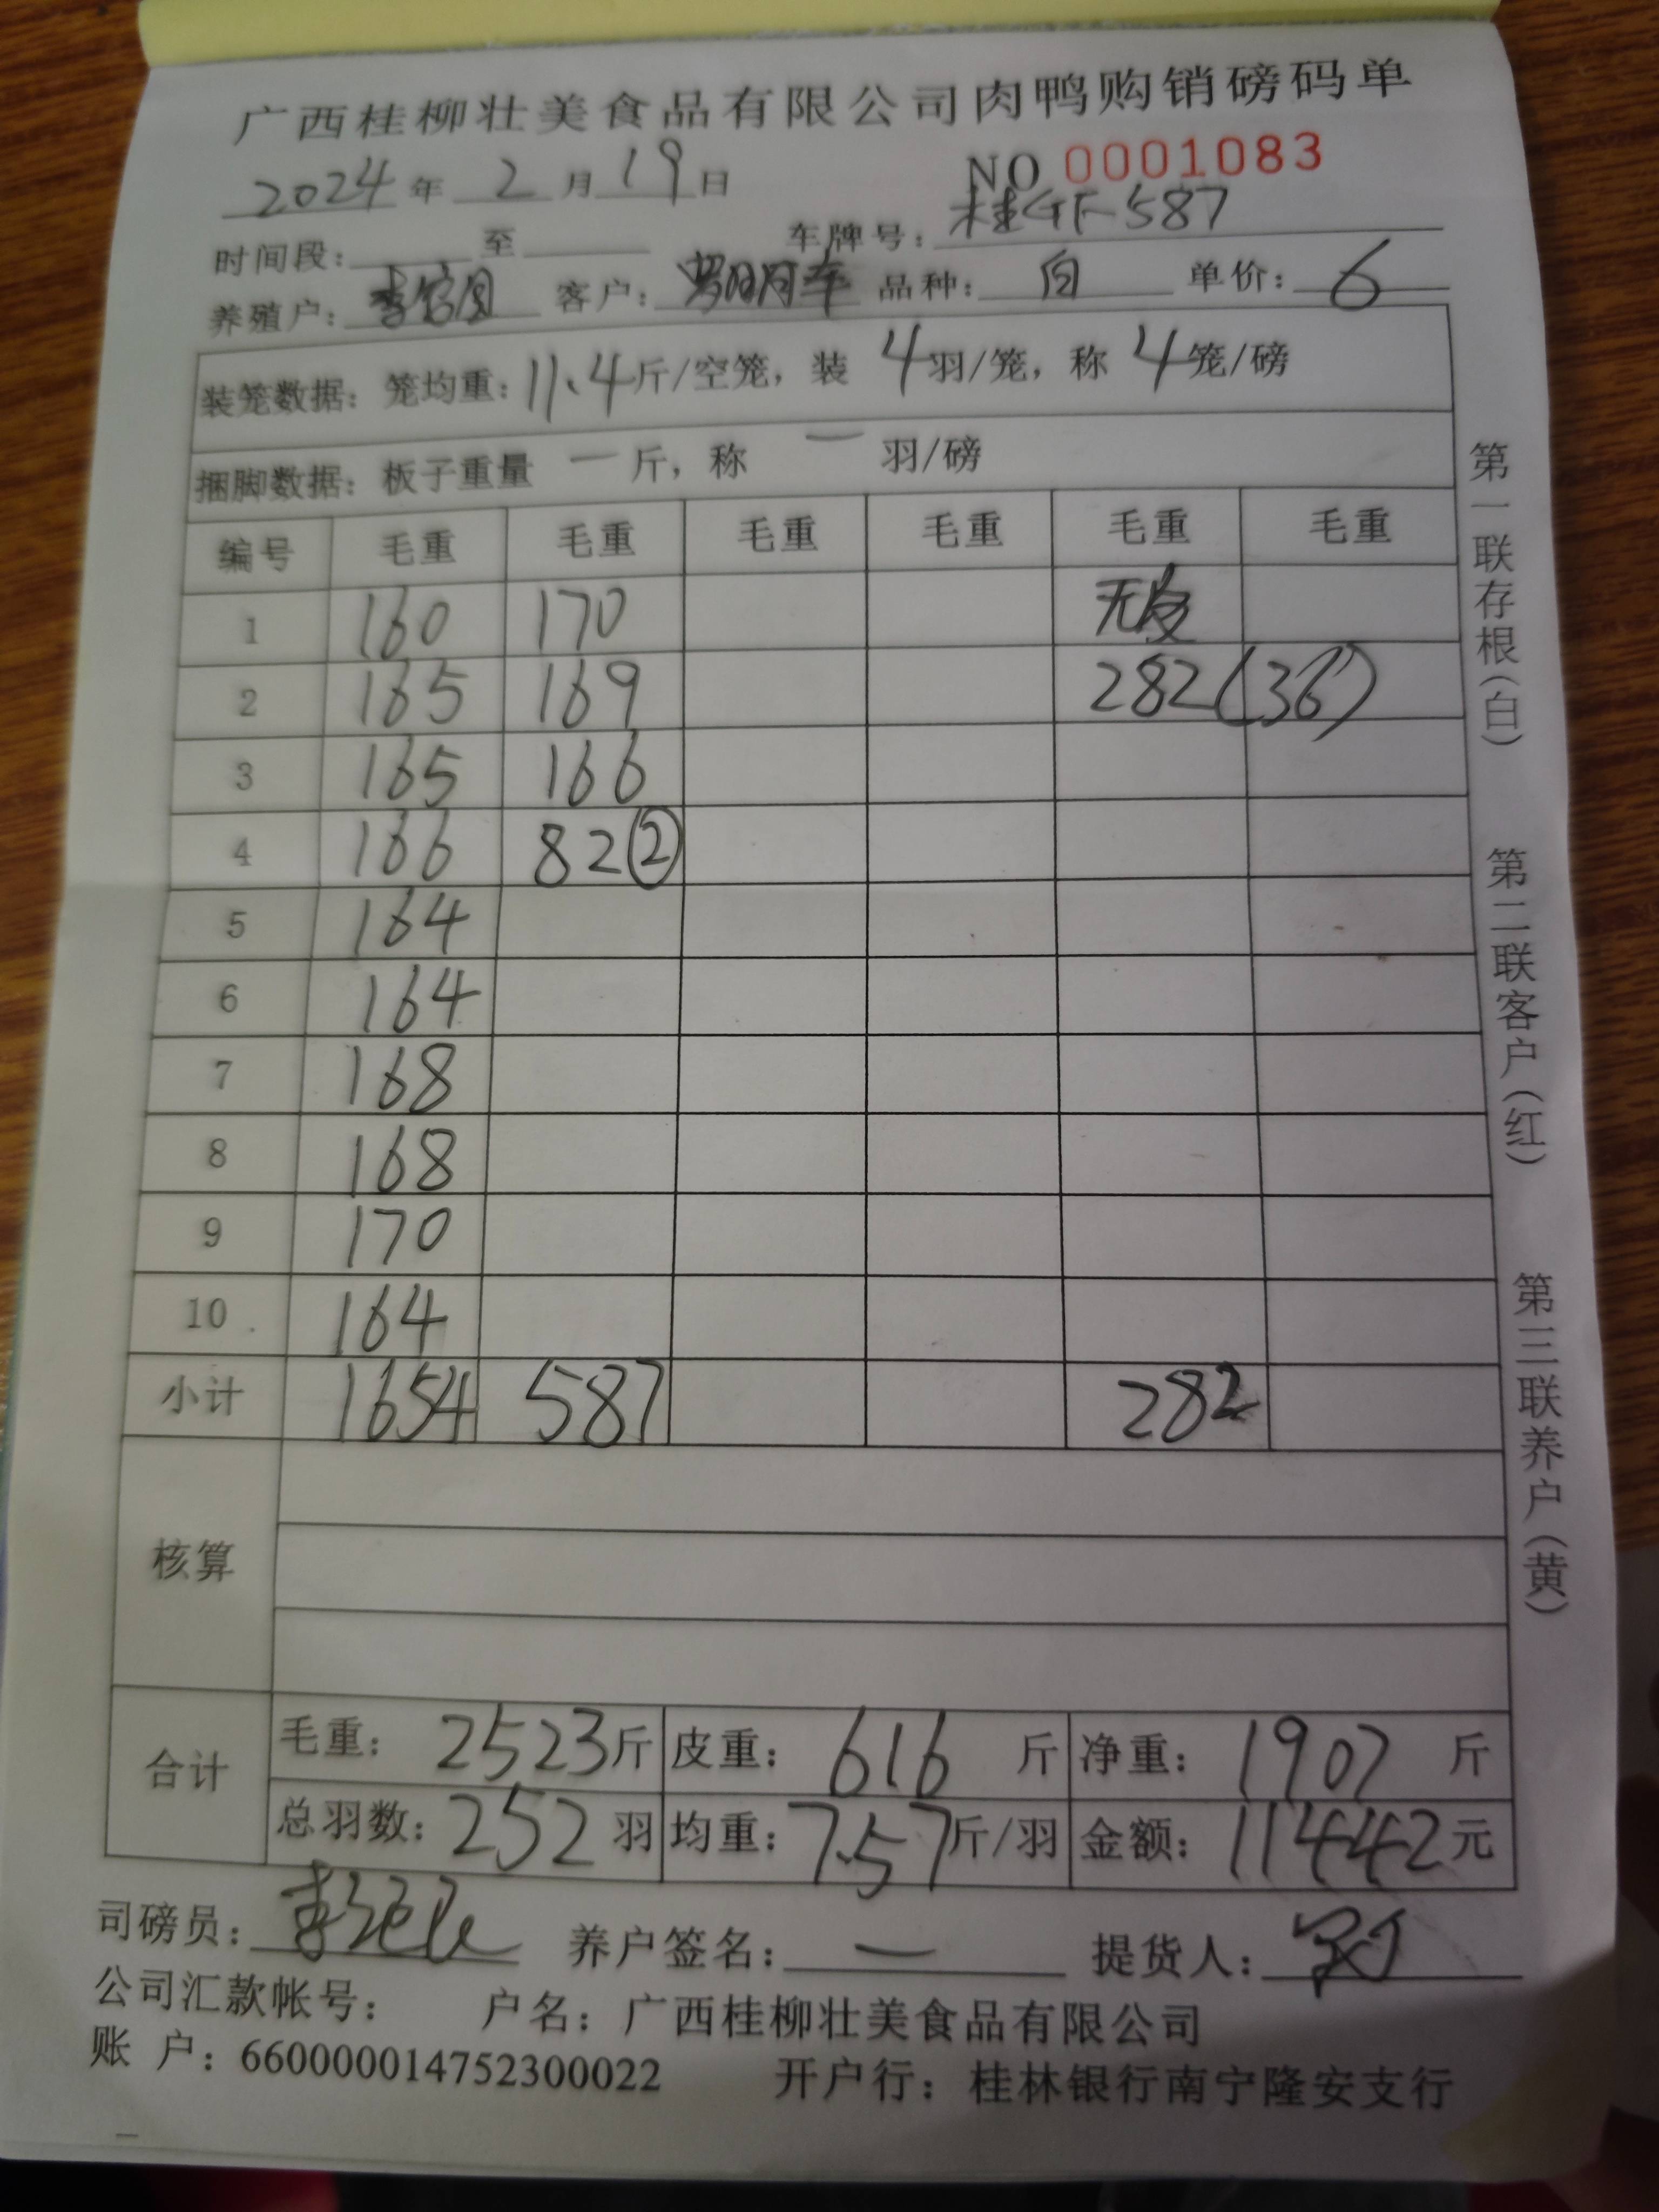 广西桂柳壮美食品有限公司肉鸭购销磅码单
2024年 2 月 19 日 NO 0001083
时间段: 至 车牌号: 桂GF587
养殖户: 客户: 品种: 白 单价: 6
装笼数据: 笼均重: 11.4斤/空笼, 装 4 羽/笼, 称 4 笼/磅
捆脚数据: 板子重量 一 斤, 称 一 羽/磅
编号 毛重 毛重 毛重 毛重 毛重 毛重
1 160 170 无皮
2 165 169 282(36)
3 165 166
4 166 82②
5 164
6 164
7 168
8 168
9 170
10 164
小计 1654 587 282
核算
合计 毛重: 2523斤 皮重: 616 斤 净重: 1907 斤
总羽数: 252 羽 均重: 7.57斤/羽 金额: 11442元
司磅员: 养户签名: 一 提货人:
公司汇款帐号: 户名: 广西桂柳壮美食品有限公司
账 户: 660000014752300022 开户行: 桂林银行南宁隆安支行
第一联存根(白) 第二联客户(红) 第三联养户(黄)